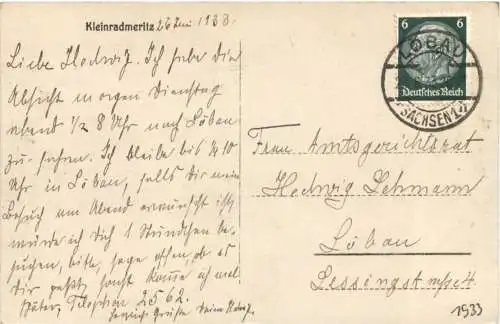 Kleinradmeritz 26 Juni 1933.
Liebe Hedwig. Ich habe die
Absicht morgen Dienstag
abend 1/2 8 Uhr nach Löbau
zu fahren. Ich bleibe bis 3/4 10
Uhr in Löbau, falls Dir mein
Besuch am Abend erwünscht ist,
würde ich Dich 1 Stündchen be-
suchen, bitte, sage offen, ob es
Dir paßt, sonst komme ich mal
später, Telephon 2562.
Herzlich Grüße Deine
6 6
Deutsches Reich
LÖBAU
SACHSEN
Frau Amtsgerichtsrat
Hedwig Lehmann
Löbau
Lessingstr
1933